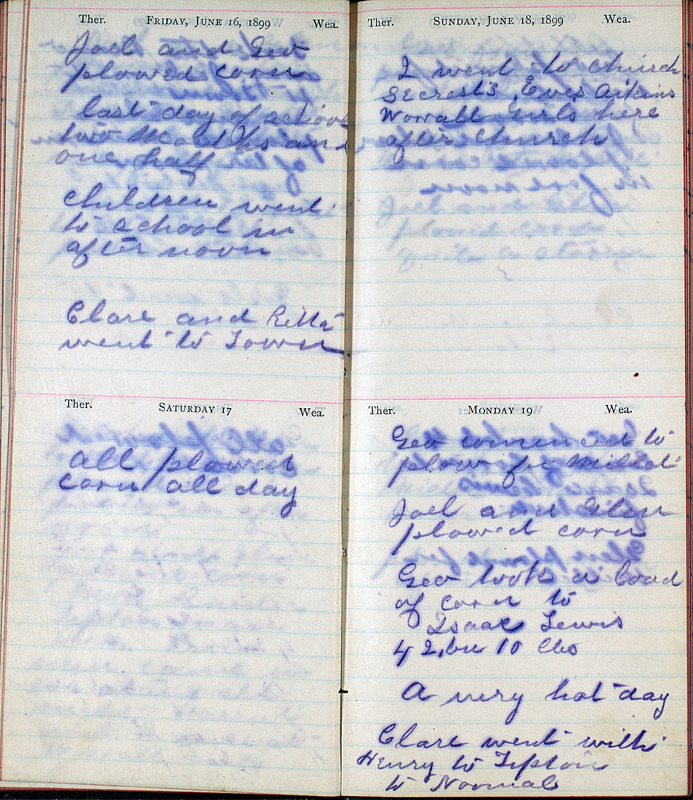 Ther. FRIDAY, JUNE 16, 1899 Wea.
Joel and Geo
plowed corn
last day of school
two months and
one half
children went
to school in
after noon
Clare and Retta
went to Town
Ther. SATURDAY 17 Wea.
all plowed
corn all day
Ther. SUNDAY, JUNE 18, 1899 Wea.
I went to church
Secrests, Eves Aikins
Worrall girls here
after church
Ther. MONDAY 19 Wea.
Geo comenced to
plow for
Joel and Glen
plowed corn
Geo took a load
of corn to
Isaac Lewis
42 bu 10 lbs
A very hot day
Clare went with
Henry to Tipton
to Normal